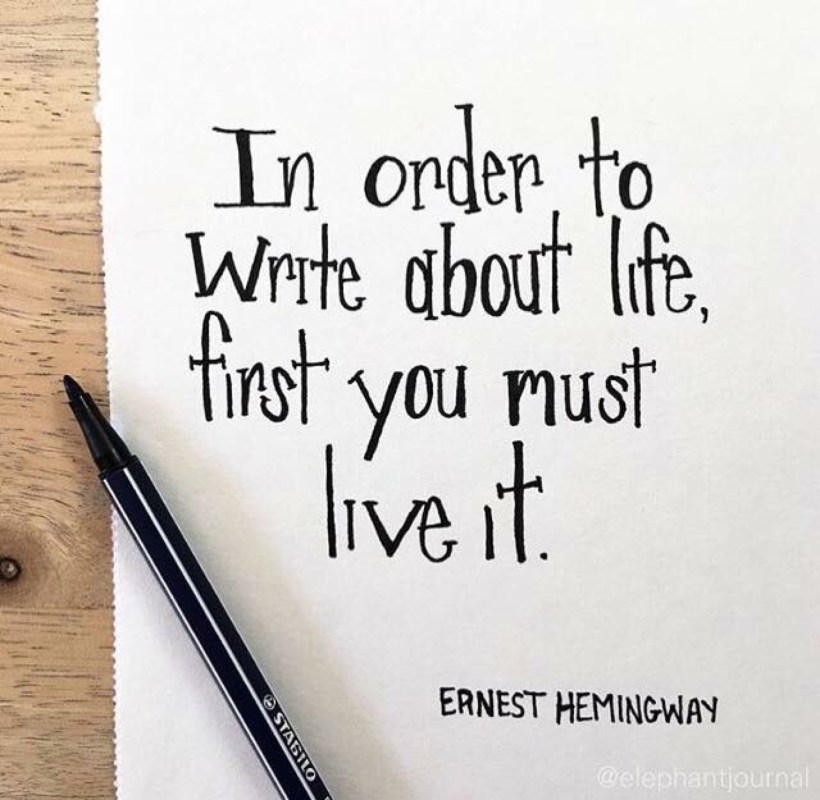 In order to
Write about life,
first you must
live it.
ERNEST HEMINGWAY
STABILO
@elephantjournal